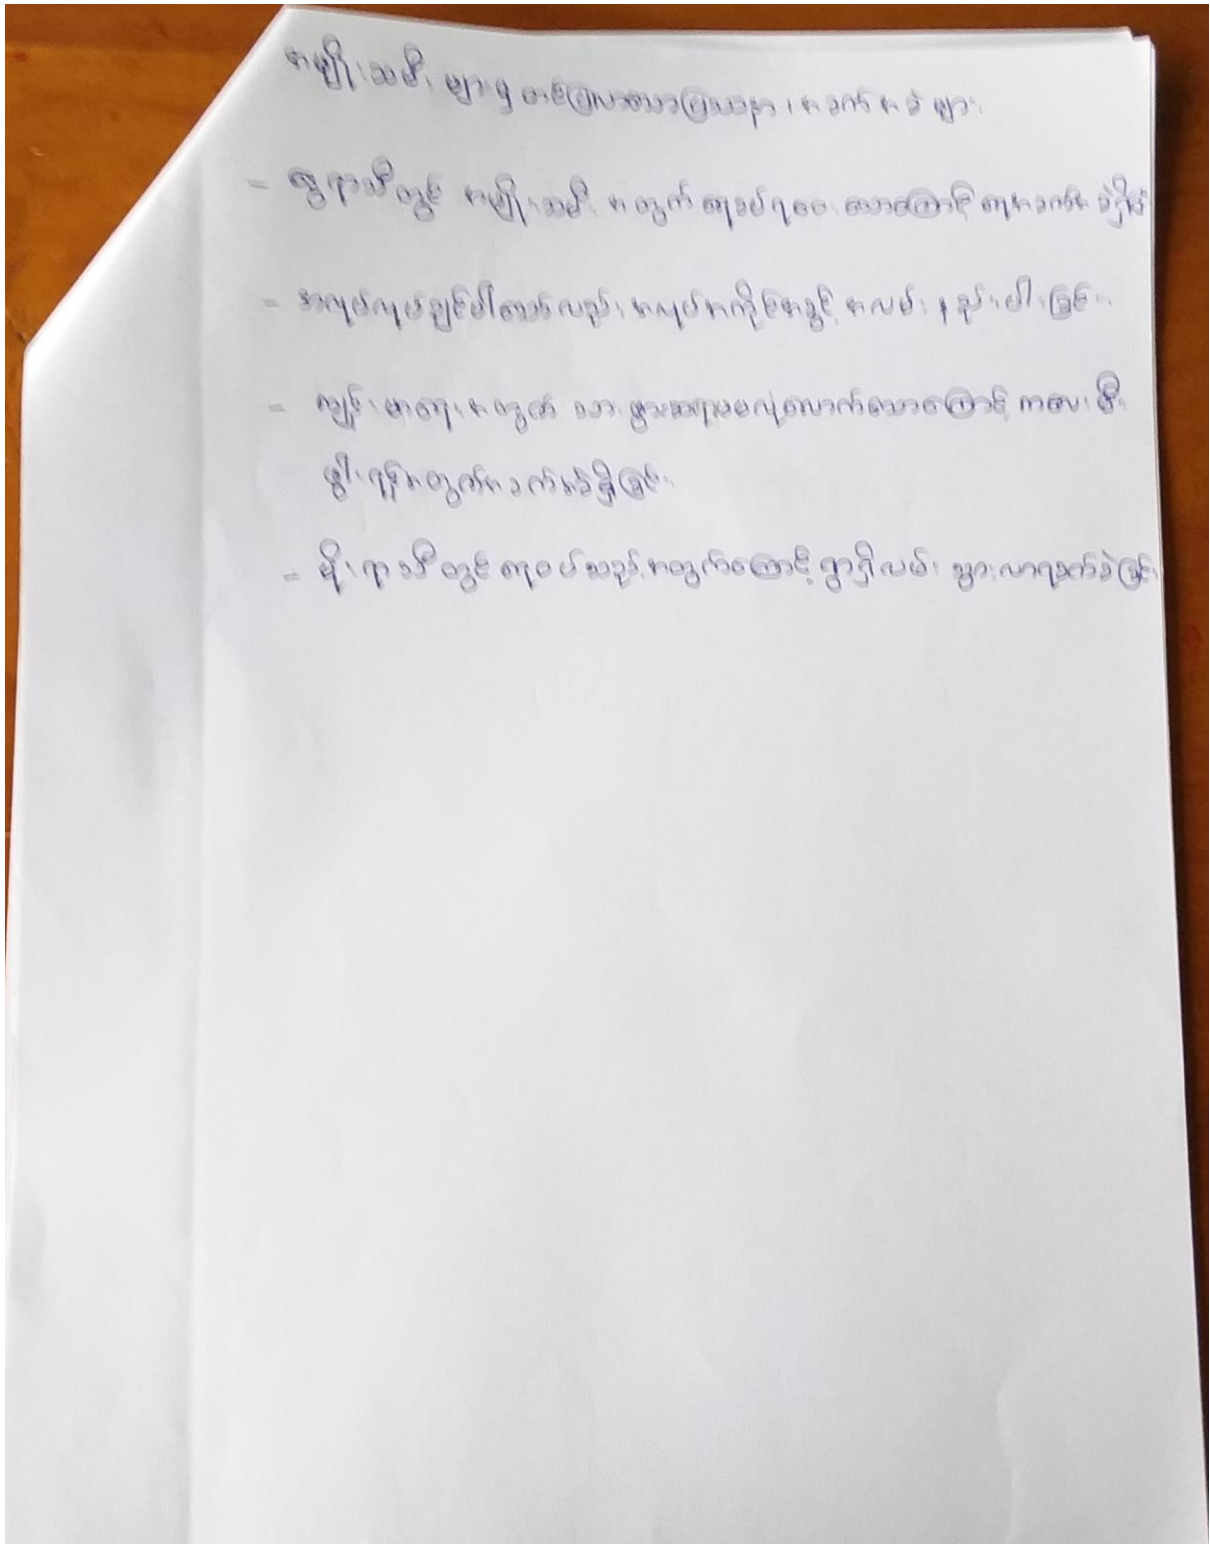 အမျိုးသမီး များမှ တင်ပြလာသော ပြဿနာ၊ အခက်အခဲ များ
- နွေရာသီတွင် အမျိုးသမီး အတွက် ရေခပ်ရဝေး သောကြောင့် ရေအခက်အခဲရှိ
- အလုပ်လုပ်ချင်ပါသော်လည်း အလုပ်အကိုင်အခွင့် အလမ်း နည်းပါးခြင်း။
- ကျန်းမာရေး အတွက် သားဖွားဆရာမမလုံလောက်သောကြောင့် ကလေး မီး
ဖွါးရန်အတွက်အခက်အခဲရှိခြင်း
- မိုးရာသီတွင် ရေဝပ်သည့်အတွက်ကြောင့် ရွာရှိလမ်း သွားလာရခက်ခဲခြင်း